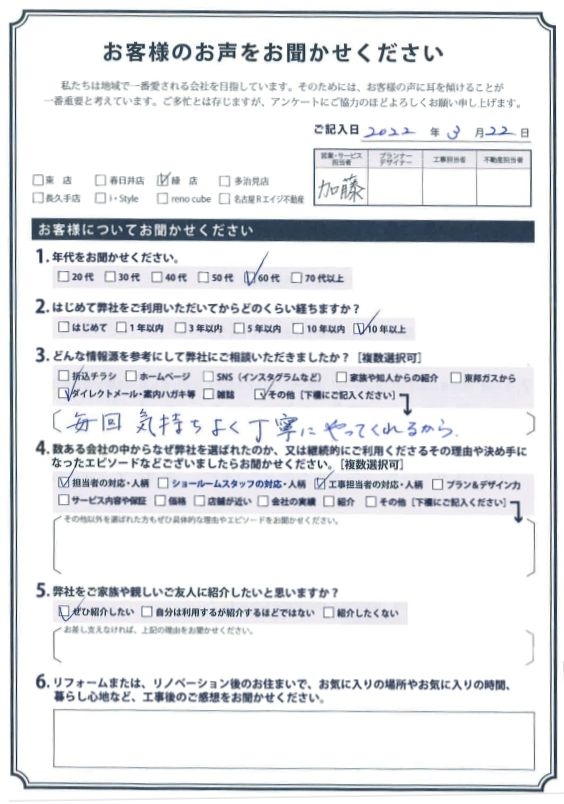 お客様のお声をお聞かせください
私たちは地域で一番愛される会社を目指しています。そのためには、お客様の声に耳を傾けることが
一番重要と考えています。ご多忙とは存じますが、アンケートにご協力のほどよろしくお願い申し上げます。
ご記入日 2022 年 3 月 22 日
営業・サービス担当者 プランナーデザイナー 工事担当者 不動産担当者
加藤
□東 店 □春日井店 ☑緑 店 □多治見店
□長久手店 □i・Style □reno cube □名古屋Rエイジ不動産
お客様についてお聞かせください
1. 年代をお聞かせください。
□20代 □30代 □40代 □50代 ☑60代 □70代以上
2. はじめて弊社をご利用いただいてからどのくらい経ちますか？
□はじめて □1年以内 □3年以内 □5年以内 □10年以内 ☑10年以上
3. どんな情報源を参考にして弊社にご相談いただきましたか？［複数選択可］
□折込チラシ □ホームページ □SNS（インスタグラムなど） □家族や知人からの紹介 □東邦ガスから
☑ダイレクトメール・案内ハガキ等 □雑誌 ☑その他［下欄にご記入ください］
毎回 気持ちよく丁寧にやってくれるから.
4. 数ある会社の中からなぜ弊社を選ばれたのか、又は継続的にご利用くださるその理由や決め手に
なったエピソードなどございましたらお聞かせください。［複数選択可］
☑担当者の対応・人柄 □ショールームスタッフの対応・人柄 ☑工事担当者の対応・人柄 □プラン&デザイン力
□サービス内容や保証 □価格 □店舗が近い □会社の実績 □紹介 □その他［下欄にご記入ください］
その他以外を選ばれた方もぜひ具体的な理由やエピソードをお聞かせください。
5. 弊社をご家族や親しいご友人に紹介したいと思いますか？
☑ぜひ紹介したい □自分は利用するが紹介するほどではない □紹介したくない
お差し支えなければ、上記の理由をお聞かせください。
6. リフォームまたは、リノベーション後のお住まいで、お気に入りの場所やお気に入りの時間、
暮らし心地など、工事後のご感想をお聞かせください。